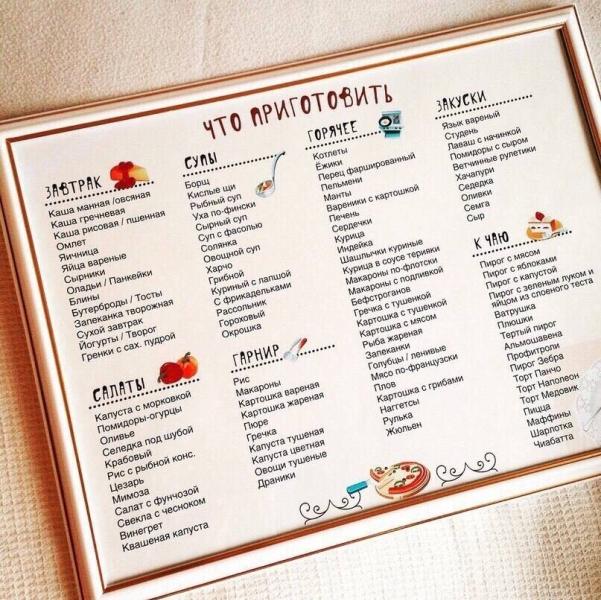 ЧТО ПРИГОТОВИТЬ
ЗАВТРАК
Каша манная /овсяная
Каша гречневая
Каша рисовая / пшенная
Омлет
Яичница
Яйца вареные
Сырники
Оладьи / Панкейки
Блины
Бутерброды / Тосты
Запеканка творожная
Сухой завтрак
Йогурты / Творог
Гренки с сах. пудрой
САЛАТЫ
Капуста с морковкой
Помидоры-огурцы
Оливье
Селедка под шубой
Крабовый
Рис с рыбной конс.
Цезарь
Мимоза
Салат с фунчозой
Свекла с чесноком
Винегрет
Квашеная капуста
СУПЫ
Борщ
Кислые щи
Рыбный суп
Уха по-фински
Сырный суп
Суп с фасолью
Солянка
Овощной суп
Харчо
Грибной
Куриный с лапшой
С фрикадельками
Рассольник
Гороховый
Окрошка
ГАРНИР
Рис
Макароны
Картошка вареная
Картошка жареная
Пюре
Гречка
Капуста тушеная
Капуста цветная
Овощи тушеные
Драники
ГОРЯЧЕЕ
Котлеты
Ёжики
Перец фаршированный
Пельмени
Манты
Вареники с картошкой
Печень
Сердечки
Курица
Индейка
Шашлычки куриные
Курица в соусе терияки
Макароны по-флотски
Макароны с подливкой
Бефстроганов
Гречка с тушенкой
Картошка с тушенкой
Картошка с мясом
Рыба жареная
Запеканки
Голубцы / ленивые
Мясо по-французски
Плов
Картошка с грибами
Наггетсы
Рулька
Жюльен
ЗАКУСКИ
Язык вареный
Студень
Лаваш с начинкой
Помидоры с сыром
Ветчинные рулетики
Хачапури
Селедка
Оливки
Семга
Сыр
К ЧАЮ
Пирог с мясом
Пирог с яблоками
Пирог с капустой
Пирог с зеленым луком и
яйцом из слоеного теста
Ватрушка
Плюшки
Тертый пирог
Альмошавена
Профитроли
Пирог Зебра
Торт Панчо
Торт Наполеон
Торт Медовик
Пицца
Маффины
Шарлотка
Чиабатта